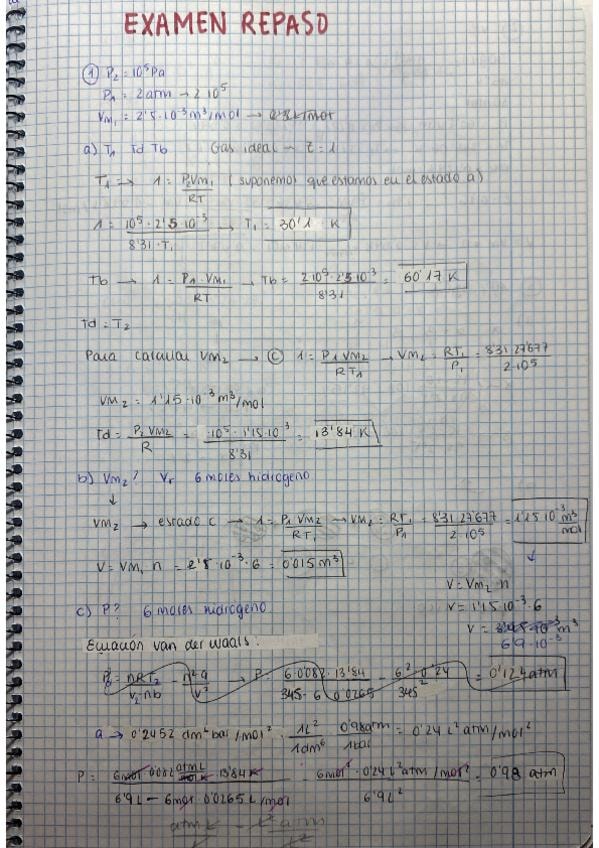 EXAMEN REPASO
① P₂ = 10⁵ Pa
P₁ = 2 atm → 2 10⁵
Vm₁ = 2'5·10⁻³ m³/mol →
a) T₁ Td Tb Gas ideal → Z = 1
T₁ → 1 = P₂Vm₁ / RT (suponemos que estamos en el estado a)
1 = 10⁵ · 2'5·10⁻³ / 8'31·T₁ → T₁ = 30'1 K
Tb → 1 = P₁·Vm₁ / RT → Tb = 2·10⁵·2'5·10⁻³ / 8'31 = 60'17 K
Td = T₂
Para calcular Vm₂ → ⓒ 1 = P₁Vm₂ / RT₁ → Vm₂ = RT₁ / P₁ = 8'31·27'677 / 2·10⁵
Vm₂ = 1'15·10⁻³ m³/mol
Td = P₂Vm₂ / R = 10⁵·1'15·10⁻³ / 8'31 = 13'84 K
b) Vm₂? Vr 6 moles hidrógeno
↓
Vm₂ → estado c → 1 = P₁Vm₂ / RT₁ → Vm₂ = RT₁ / P₁ = 8'31·27'677 / 2·10⁵ = 1'15·10⁻³ m³/mol
V = Vm₁ n = 2'5·10⁻³·6 = 0'015 m³
↓
V = Vm₂·n
V = 1'15·10⁻³·6
V = 3'45·10⁻³ m³
6'9·10⁻³
c) P? 6 moles hidrógeno
Ecuación van der Waals:
P₂ = nRT₂ / V₂-nb - n²a / V² → P = 6·0'082·13'84 / 3'45-6·0'0265 - 6²·0'24 / 3'45² = 0'124 atm
a → 0'2452 dm⁶ bar/mol² · 1L² / 1dm⁶ · 0'98atm / 1bar = 0'24 L² atm/mol²
P = 6mol·0'082 atm L / mol K·13'84 K / 6'9L - 6mol·0'0265 L/mol - 6mol²·0'24 L² atm/mol² / 6'9 L² = 0'98 atm
atm L / L - L² atm / L²